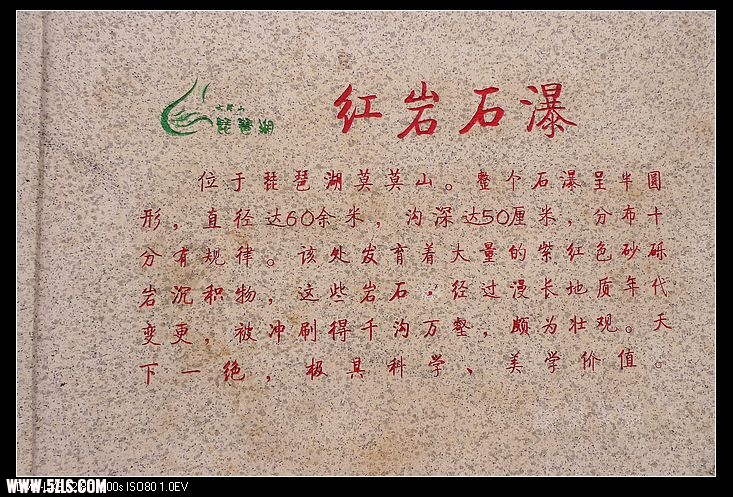 琵琶湖
红岩石瀑
位于琵琶湖莫莫山。整个石瀑呈半圆
形，直径达60余米，沟深达50厘米，分布十
分有规律。该处发育着大量的紫红色砂砾
岩沉积物，这些岩石，经过漫长地质年代
变更，被冲刷得千沟万壑，颇为壮观。天
下一绝，极具科学、美学价值。
WWW.5ZLS.COM
00s ISO80 1.0EV